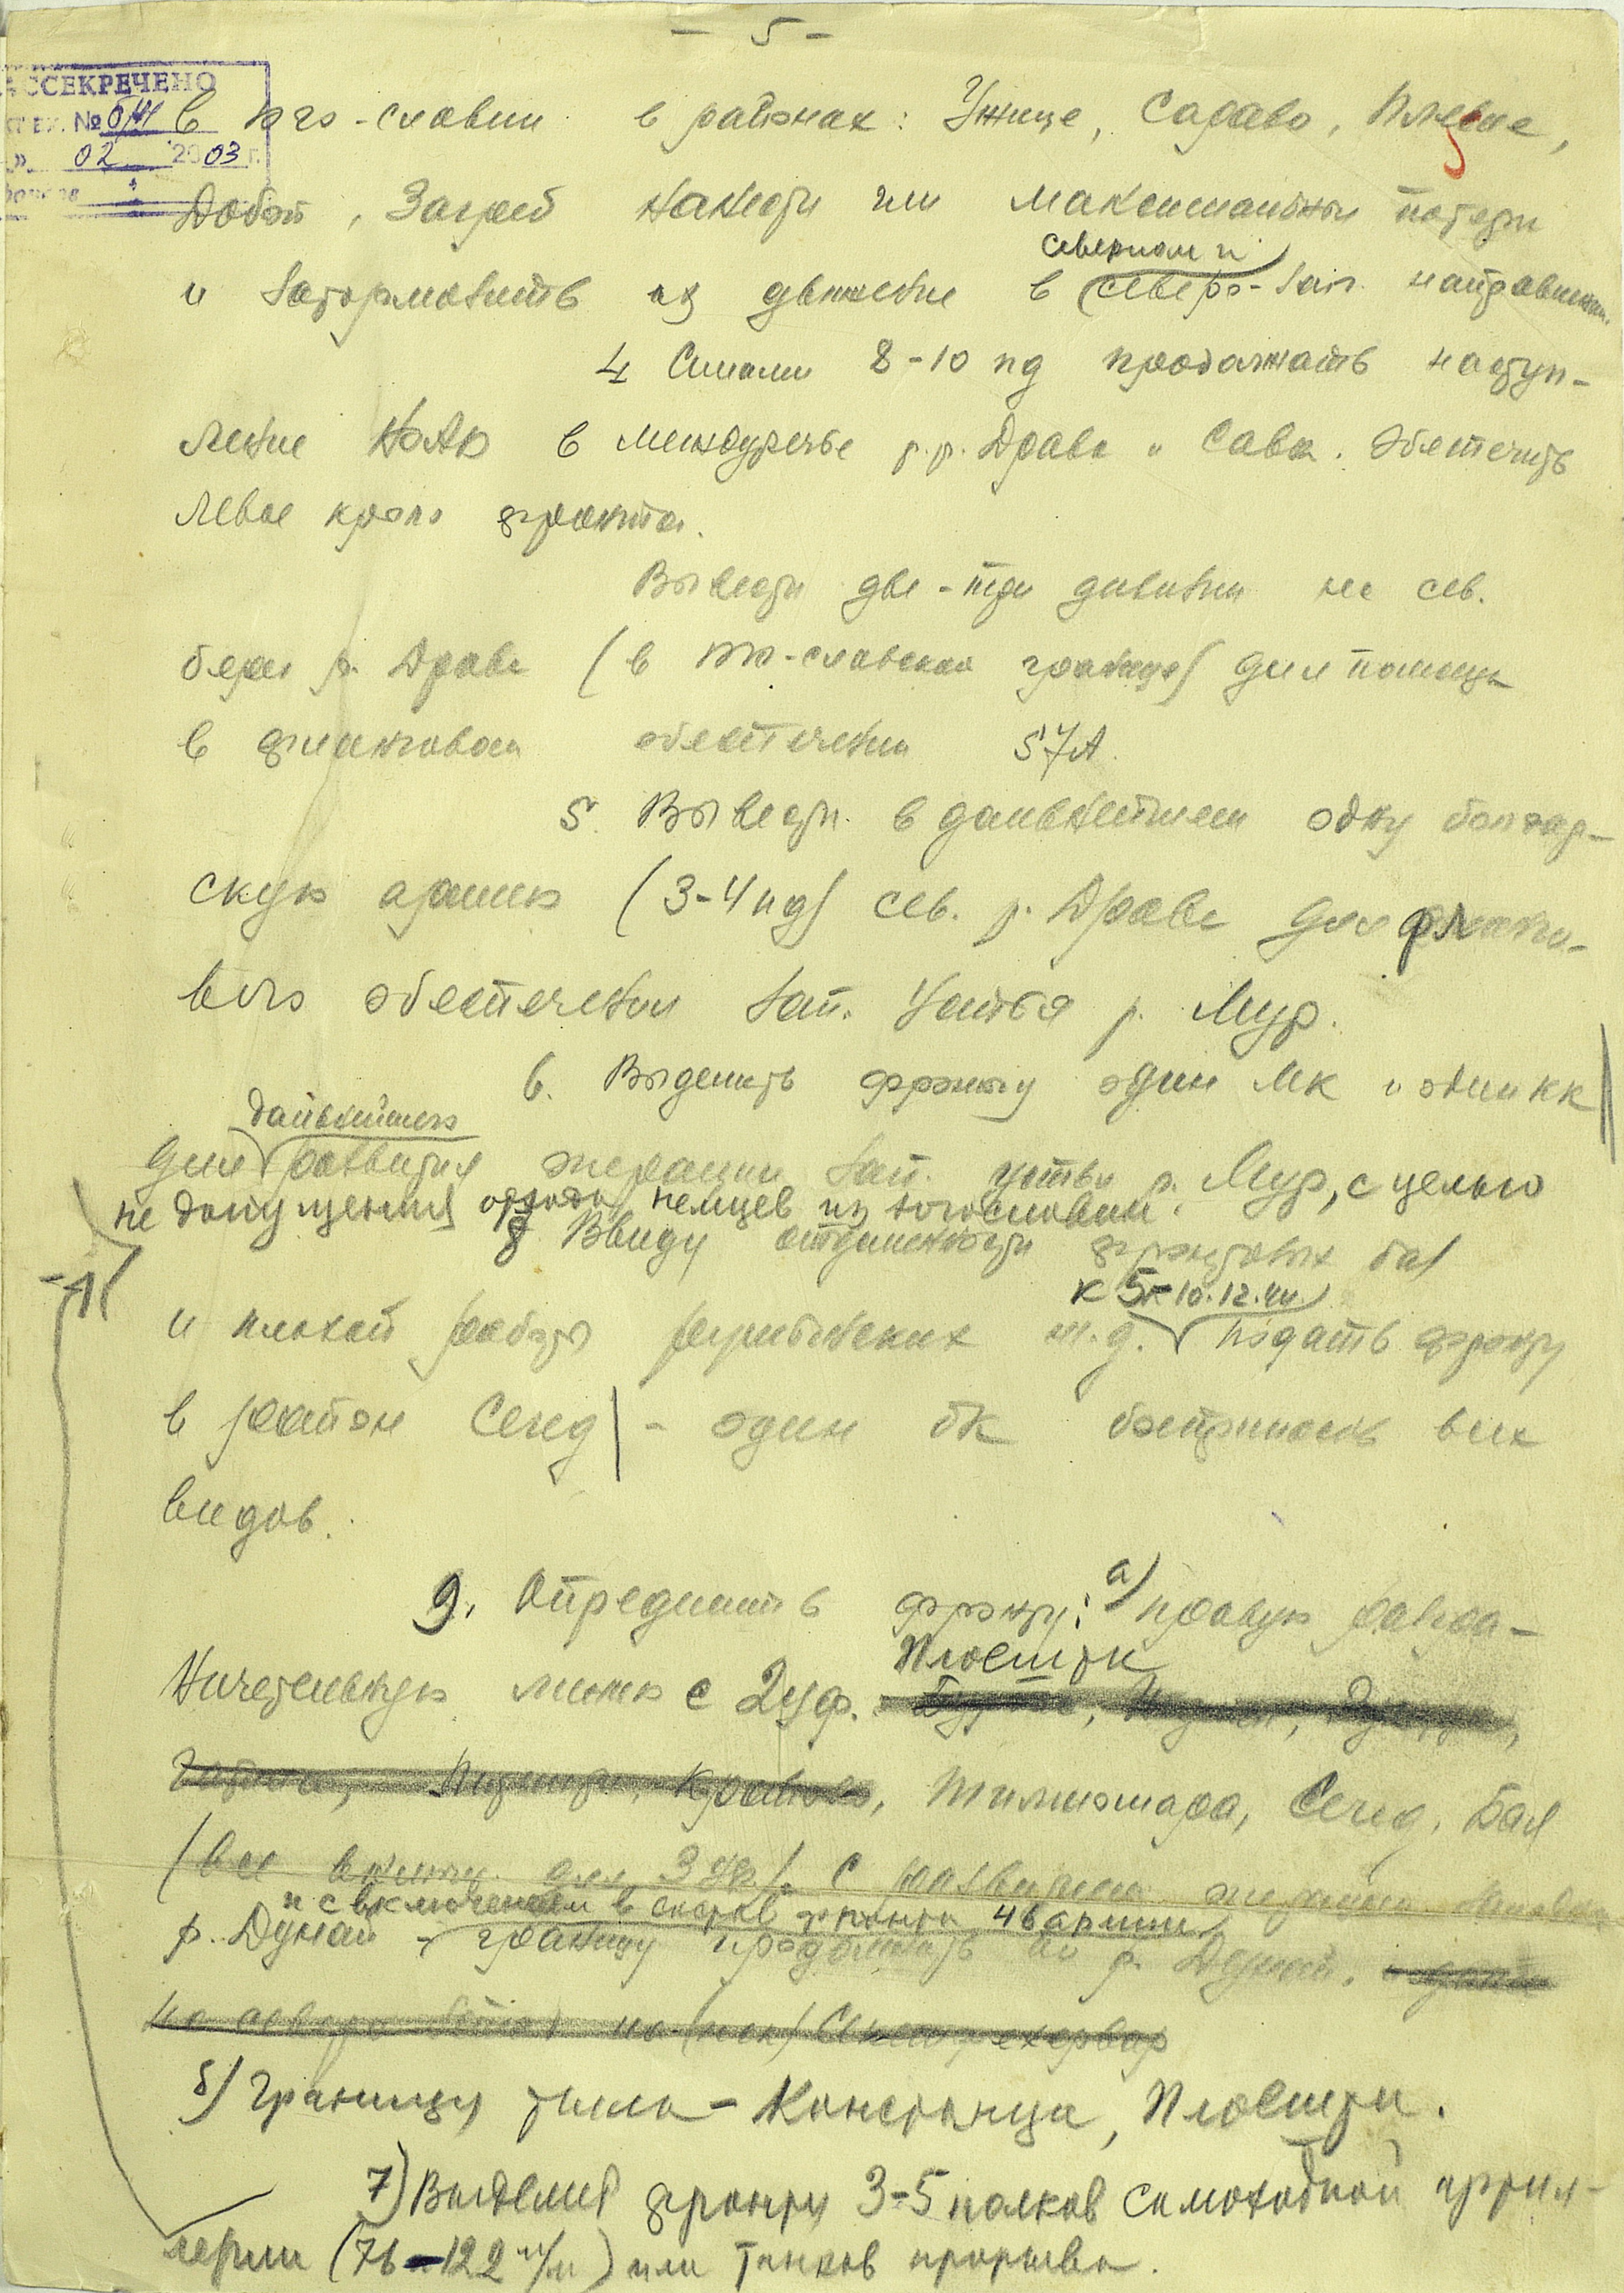 - 5 -
РАССЕКРЕЧЕНО
№ 6/м
02 2003 г.
в Юго-славии в районах: Ужице, Сараево, Плевле,
Добой, Загреб нанести им максимальные потери
северном и
и затормозить их движение в северо-зап. направлении.
4 Силами 8-10 пд продолжать наступ-
ление НОАЮ в междуречье р.р. Драва и Сава. Обеспечить
левое крыло фронта.
Вывести две-три дивизии на сев.
берег р. Драва (в юго-славской границе) для помощи
в фланговом обеспечении 57А.
5. Вывести в дальнейшем одну болгар-
скую армию (3-4 пд) сев. р. Драва для фланго-
вого обеспечения зап. Устья р. Мур.
6. Выделить фронту один мк и один кк
дальнейшего
для развития операции зап. устья р. Мур, с целью
не допущения отхода немцев из Югославии.
8 Ввиду отдаленности фронтовых баз
к 5-10.12.44.
и плохой работы румынских ж.д. подать фронту
в район Сегед - один бк боеприпасов всех
видов.
9. Определить фронту: а) правую разгра-
Плоешти
ничительную линию с 2уф.
Крайово, Тимишоара, Сегед, Бая
(все включ. для 3 уф). С развитием операции
и с включением в состав фронта 46 армии
р. Дунай - границу продолжить по р. Дунай,
б) Границу тыла - Констанца, Плоешти.
7) Выделить фронту 3-5 полков самоходной артил-
лерии (76-122 м/м) или танков прорыва.